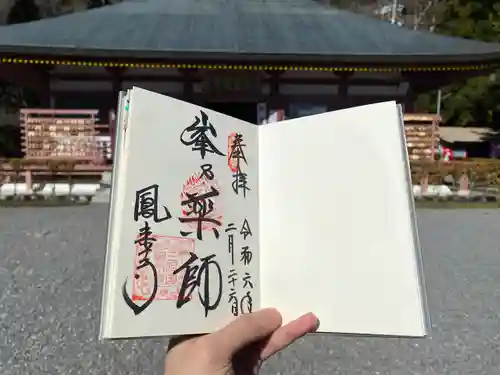 奉拝
令和六年
二月二十六
峯乃薬師
鳳来寺